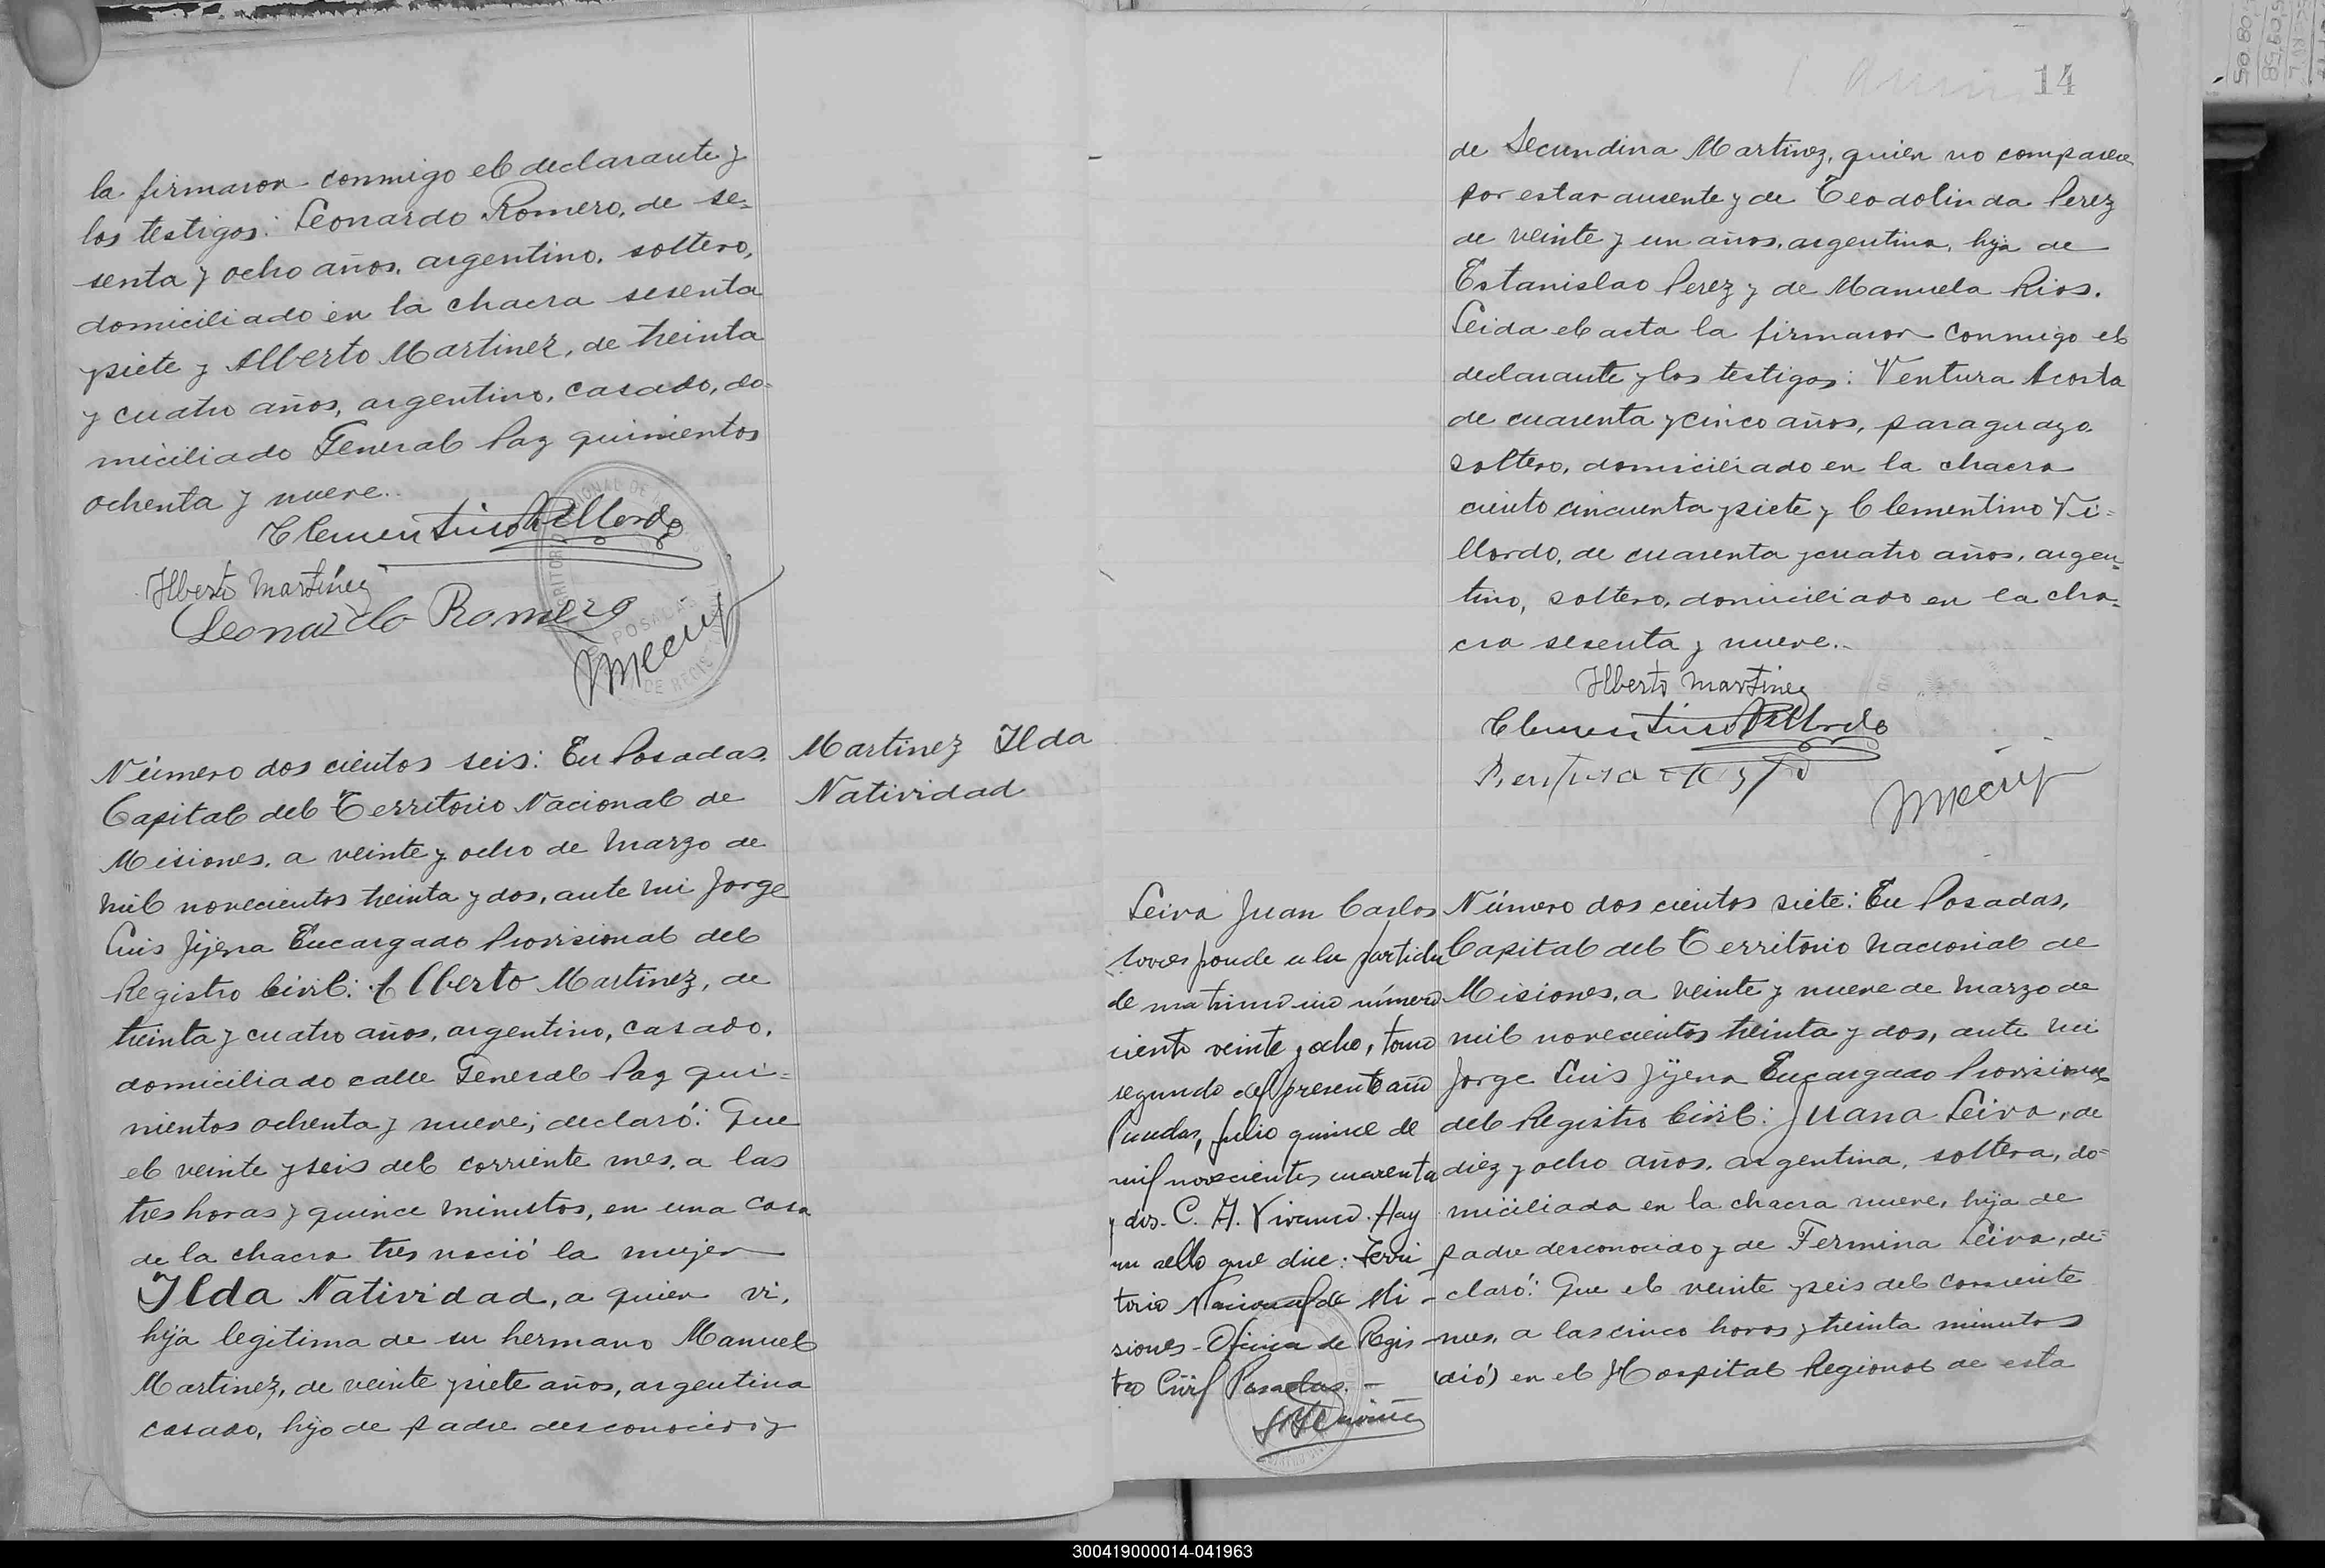 la firmaron conmigo el declarante y
los testigos: Leonardo Romero, de se-
senta y ocho años, argentino, soltero,
domiciliado en la chacra sesenta
y siete y Alberto Martinez, de treinta
y cuatro años, argentino, casado, do-
miciliado General Paz quinientos
ochenta y nueve..
Clementino Villordo
Alberto Martinez
Leonardo Romero
POSADAS
Número dos cientos seis: En Posadas,
Capital del Territorio Nacional de
Misiones, a veinte y ocho de Marzo de
mil novecientos treinta y dos, ante mi Jorge
Luis Jijena Encargado Provisional del
Registro Civil: Alberto Martinez, de
treinta y cuatro años, argentino, casado,
domiciliado calle General Paz qui-
nientos ochenta y nueve; declaró: Que
el veinte y seis del corriente mes, a las
tres horas y quince minutos, en una casa
de la chacra tres nació la mujer
Ilda Natividad, a quien vi,
hija legitima de su hermano Manuel
Martinez, de veinte y siete años, argentina
casado, hijo de padre desconocido y
Martinez Ilda
Natividad
14
de Secundina Martinez, quien no comparece
por estar ausente y de Teodolinda Perez
de veinte y un años, argentina, hija de
Estanislao Perez y de Manuela Rios.
Leida el acta la firmaron conmigo el
declarante y los testigos: Ventura Acosta
de cuarenta y cinco años, paraguayo,
soltero, domiciliado en la chacra
ciento cincuenta y siete y Clementino Vi-
llordo, de cuarenta y cuatro años, argen-
tino, soltero, domiciliado en la cha-
cra sesenta y nueve..
Alberto Martinez
Clementino Villordo
Leiva Juan Carlos
Corresponde a la partida
de matrimonio número
ciento veinte y ocho, tomo
segundo del presente año
Posadas, Julio quince de
mil novecientos cuarenta
y dos. C. H. Vivanco. Hay
un sello que dice: Terri
torio Nacional de Mi-
siones - Oficina de Regis-
tro Civil Posadas. -
Número dos cientos siete: En Posadas,
Capital del Territorio Nacional de
Misiones, a veinte y nueve de Marzo de
mil novecientos treinta y dos, ante mi
Jorge Luis Jijena Encargado Provisional
del Registro Civil: Juana Leiva, de
diez y ocho años, argentina, soltera, do-
miciliada en la chacra nueve, hija de
padre desconocido y de Fermina Leiva, de-
claró: Que el veinte y seis del corriente
mes, a las cinco horas y treinta minutos
(dió) en el Hospital Regional de esta
300419000014-041963